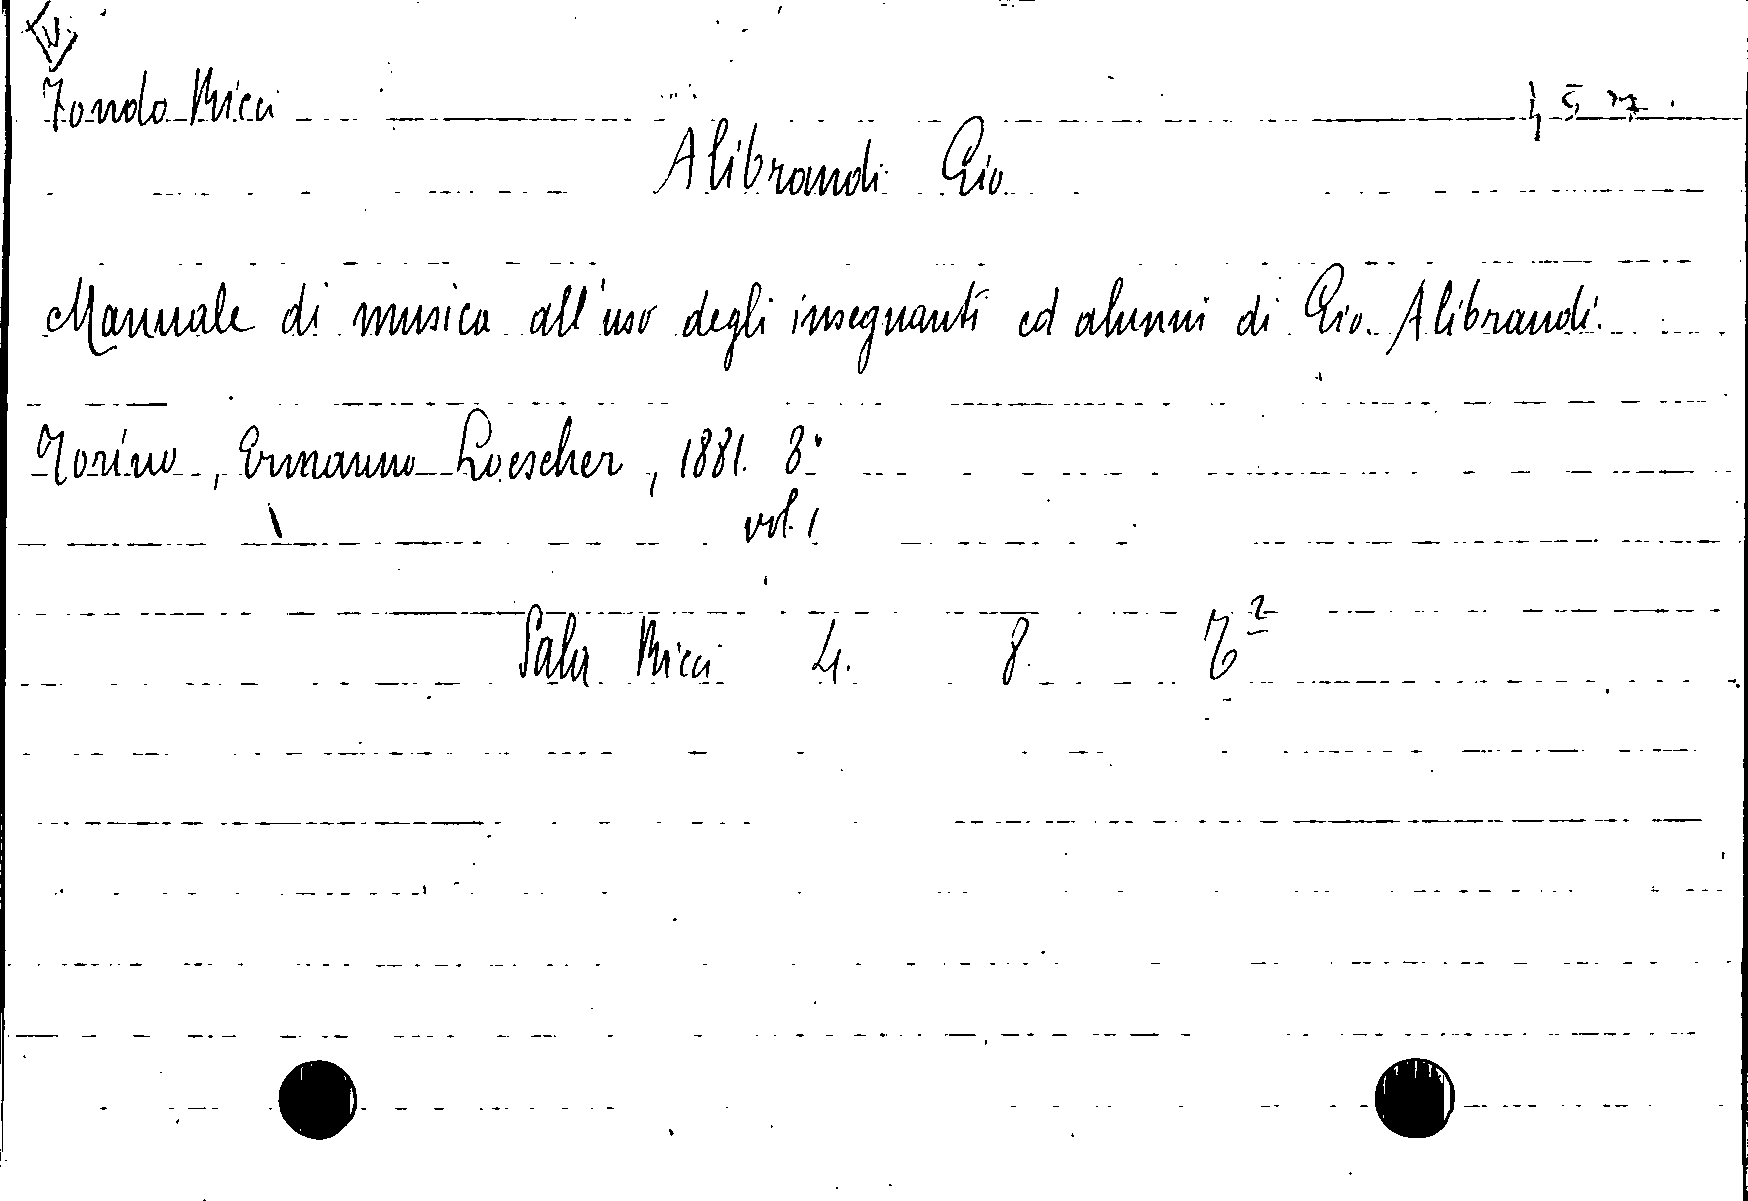 Fondo Ricci
Alibrandi Gio
Manuale di musica all'uso degli insegnanti ed alunni di Gio. Alibrandi.
Torino, Ermanno Loescher, 1881. 8°
vol. 1
Sala Ricci 4. 8.